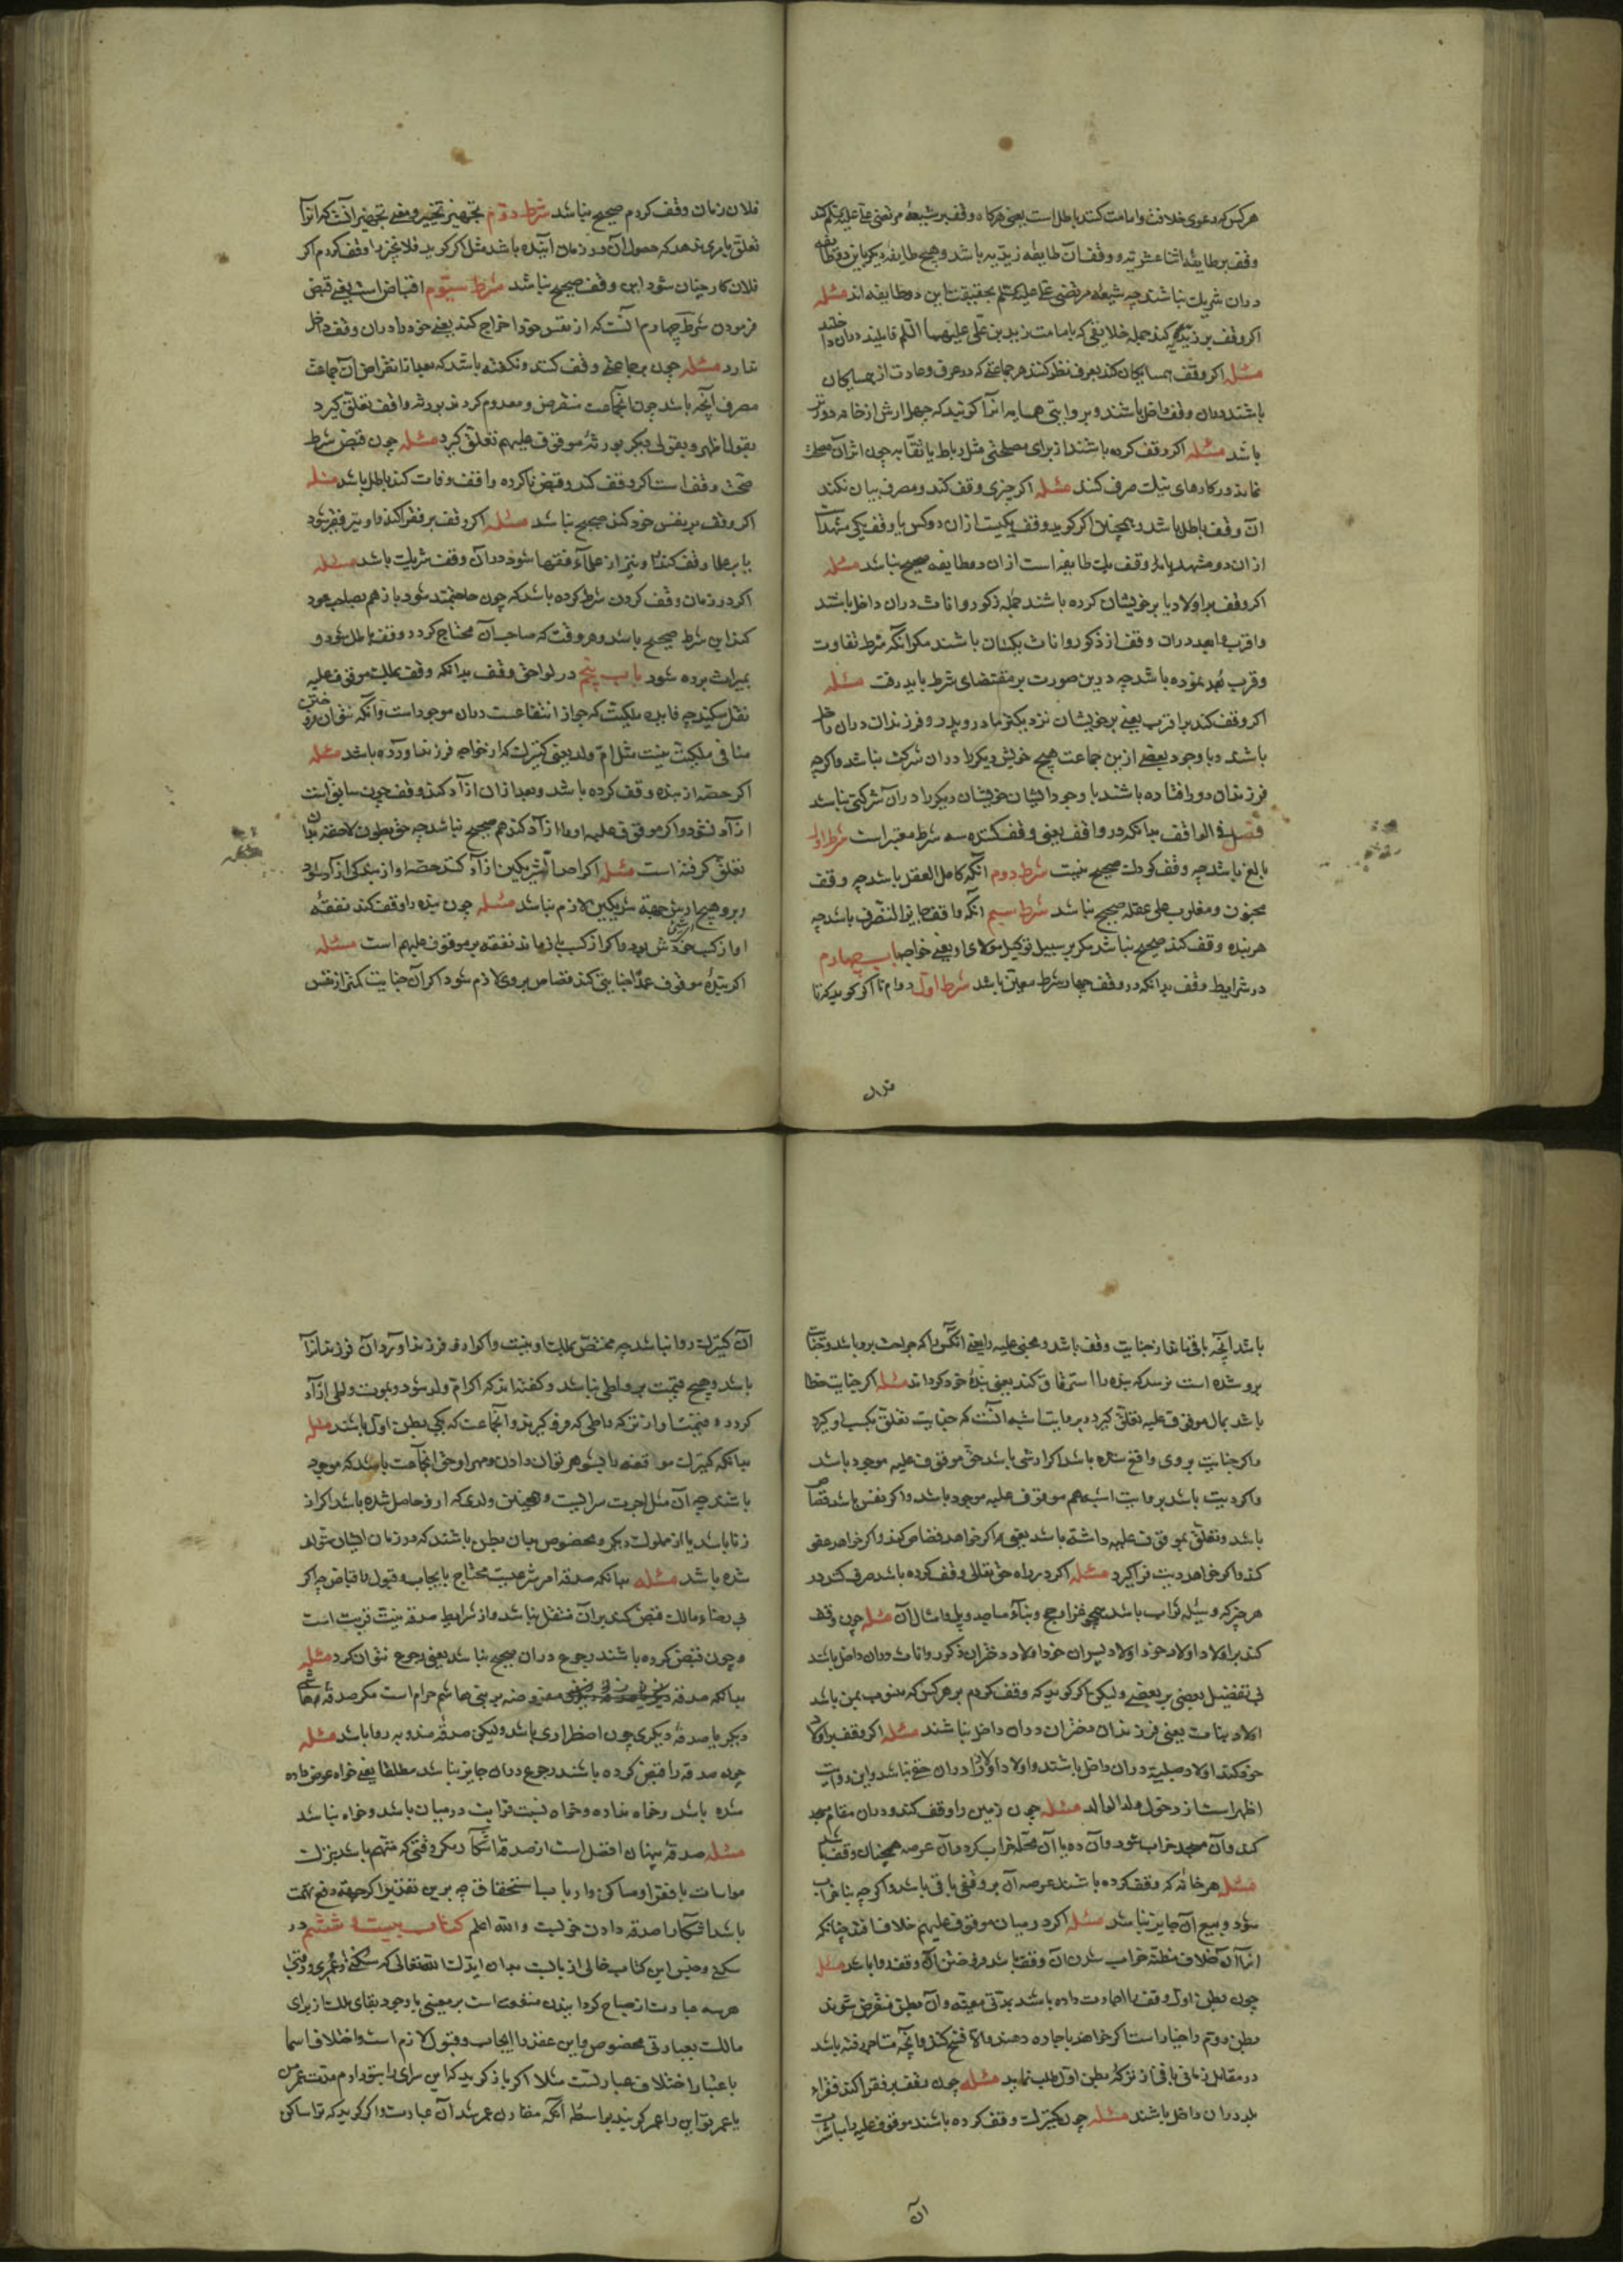 هر کس که دعوی خلافت و امامت کند باطل است یعنی هرکاه وقف بر شیعهٔ مرتضی علی علیه کند
وقف بر طایفهٔ اثنا عشریه و وقف آن طایفه زیدیه باشد و هیچ طایفه دیکر باین دو طایفه
دران شریك نباشند چه شیعهٔ مرتضی علی علیه السلم بحقیقت این دو طایفه اند مسئله
اکر وقف بر زیدیه کند جمله خلایقی که بامامت زید بن علی علیهما السلم قایلند دران داخلند
مسئله اکر وقف همسایکان کند بعرف نظر کنند هر جماعتی که در عرف و عادت از همسایکان
باشند دران وقف داخل باشند و بروایتی همسایه آنرا کویند که چهل ارش از خانه دورتر
باشد مسئله اکر وقف کرده باشند از برای مصلحتی مثل رباط یا نقابه چون اثر آن مصلحت
نماند در کارهای نیك صرف کنند مسئله اکر چیزی وقف کند و مصرف بیان نکند
ان وقف باطل باشد و همچنان اکر کوید وقف یکیست ازان دو کس یا وقف یکی مشهد است
ازان دو مشهد یا وقف یك طایفه است ازان دو طایفه صحیح نباشد مسئله
اکر وقف بر اولاد یا بر خویشان کرده باشند جمله ذکور و اناث دران داخل باشند
و اقرب و ابعد دران وقف از ذکور و اناث یکسان باشند مکر آنکه شرط تفاوت
و قرب و بعد نموده باشد چه درین صورت بر مقتضای شرط باید رفت مسئله
اکر وقف کند بر اقرب یعنی بر خویشان نزدیکتر مادر و پدر و فرزندان دران داخل
باشند و با وجود بعضی از این جماعت هیچ خویش دیکر را دران شرکت نباشد و اکرچه
فرزندان دور افتاده باشند با وجود ایشان خویشان دیکر را دران شرکتی نباشد
فصل فی الواقف بدانکه در واقف یعنی وقف کننده سه شرط معتبر است شرط اول
بالغ باشد چه وقف کودك صحیح نیست شرط دوم آنکه کامل العقل باشد چه وقف
مجنون و مغلوب علی عقله صحیح نباشد شرط سیم انکه واقف جایز التصرف باشد چه
هر بنده وقف کند صحیح نباشد مکر بر سبیل توکیل مولای او یعنی خواجه باب چهارم
در شرایط وقف بدانکه در وقف چهار شرط معین باشد شرط اول دوام تا اکر کوید که تا
فلان زمان وقف کردم صحیح نباشد شرط دوم تجهیز تخییر و معنی تجهیز آنست که انرا
تعلق بامری ندهد که حصول آن در زمان آینده باشد مثل اکر کوید فلان چیز را وقف کردم اکر
فلان کار چنان شود این وقف صحیح نباشد شرط سیوم اقباض است یعنی قبض
فرمودن شرط چهارم آنست که از نفس خود اخراج کند یعنی خود را دران وقف داخل
ندارد مسئله چون بر جماعتی وقف کنند و نکفته باشد که بعد از انقراض آن جماعت
مصرف آنچه باشد چون انجماعت منقرض و معدوم کردند بورثه واقف تعلق کیرد
بقول اظهر و بقولی دیکر بورثهٔ موقوف علیهم تعلق کیرد مسئله چون قبض شرط
صحت وقف است اکر وقف کند و قبض ناکرده واقف وفات کند باطل باشد مسئله
اکر وقف بر نفس خود کند صحیح نباشد مسئله اکر وقف بر فقرا کند و او نیز فقیر شود
یا بر علما وقف کند و نیز از علما و فقها شود دران وقف شریك باشد مسئله
اکر در زمان وقف کردن شرط کرده باشد که چون حاجتمند شود باز هم بصاحب عود
کند این شرط صحیح باشد و هر وقت که صاحب آن محتاج کردد وقف باطل شود و
بمیراث برده شود باب پنجم در لواحق وقف بدانکه وقف بملك موقوف علیه
نقل میکند چه فایده ملکیت که جواز انتفاعست دران موجود است و آنکه نتوان فروختن
منافی ملکیت نیست مثل ام ولد یعنی کنیزك که از خواجه فرزند اورده باشد مسئله
اکر حصه از بنده وقف کرده باشد و بعد ازان ازاد کند وقف چون سابق است
ازاد نشود و اکر موقوف علیه او را ازاد کند هم صحیح نباشد چه حق بطون لاحقه بدان
تعلق کرفته است مسئله اکر احد الشریکین ازاد کند حصه او از بندکی ازاد شود
و برو هیچ از جهة شریکین لازم نباشد مسئله چون بنده را وقف کند نفقهٔ
او از کسب خودش بود و اکر از کسب باز ماند نفقه بر موقوف علیهم است مسئله
اکر بندهٔ موقوف عمداً جنایتی کند قصاص بر وی لازم شود اکر آن جنایت کمتر از نفس
قران
باشد آنچه باقی ماند از جنایت وقف باشد و مجنی علیه را یعنی انکس را که جراحت برو باشد و جنایت
برو شده است نرسد که بنده را استرقاق کند یعنی بندهٔ خود کرداند مسئله اکر جنایت خطا
باشد بمال موقوف علیه تعلق کیرد و بروایت اشبه آنست که جنایت تعلق بکسب او کیرد
و اکر جنایت بر وی واقع شده باشد اکر ارشی باشد حق موقوف علیه موجود باشد
و اکر دیت باشد بروایت اشبه هم موقوف علیه موجود باشد و اکر نفس باشد قصاص
باشد و تعلق بموقوف علیه داشته باشد یعنی اکر خواهد قصاص کند و اکر خواهد عفو
کند و اکر خواهد دیت فرا کیرد مسئله اکر در راه حق تعالی وقف کرده باشد صرف کنند در
هر چیز که وسیله ثواب باشد همچو غزا و حج و بنآء مساجد و پل و امثال آن مسئله چون وقف
کند بر اولاد و اولاد خود اولاد پسران خود و اولاد دختران ذکور و اناث دران داخل باشد
بی تفضیل بعضی بر بعضی ولیکن اکر کوید که وقف کردم بر هر کس که منسوب بمن باشد
اولاد بنات یعنی فرزندان دختران دران داخل نباشند مسئله اکر وقف بر اولاد
خود کند اولاد صلبیه دران داخل باشند و اولاد اولاد را دران حقی نباشد و این روایت
اظهر است از دخول ولد الولد مسئله چون زمین را وقف کند و دران مقام مسجد
کند و آن مسجد خراب شود و آن ده یا آن محله خراب کردد آن عرصه همچنان وقف باشد
مسئله هر خانه که وقف کرده باشند عرصه آن بر وقفی باقی باشد و اکرچه بنا خراب
شود و بیع آن جایز نباشد مسئله اکر در میان موقوف علیهم خلاف افتد چنانکه
ازان خلاف مظنّه خراب شدن آن وقف باشد فروختن آن وقف روا باشد مسئله
چون بطن اول وقف را اجارت داده باشند بمدتی معینه و آن بطن منقرض شوند
بطن دوم را خیار است اکر خواهند باجاره دهند و الا فسخ کنند و آنچه متاجر رفته باشد
در مقابل زمانی باقی از ترکهٔ بطن اول طلب نماید مسئله چون وقف بر فقرا کند فقراء
بلد دران داخل باشند مسئله چون کنیزك وقف کرده باشند موقوف علیه را مباشرت
آن کنیزك روا نباشد چه مختص بملك او نیست و اکر ازو فرزند اورد آن فرزند ازاد
باشد و هیچ قیمت بر واطی نباشد و کفته اند که ام ولد شود و بموت واطی ازاد
کردد و قیمت او از ترکه واطی که وفا کیرند و آنجماعت که بطن اول باشند مسئله
بدانکه کنیزك موقوفه را بشوهر توان دادن و مهر او حق انجماعت باشد که موجود
باشند چه آن مثل اجرت سراییست و همچنین ولدی که ازو حاصل شده باشد اکر از
زنا باشد یا از مملوك دیکر و مخصوص بدان بطن باشند که در زمان ایشان متولد
شده باشد مسئله بدانکه صدقه امر شرعیست محتاج بایجاب و قبول و اقباض چه اکر
بی رضاء مالك قبض کند بر آن منتقل نباشد و از شرایط صدقه نیت قربت است
و چون قبض کرده باشند رجوع دران صحیح نباشد یعنی رجوع نتوان کرد مسئله
بدانکه صدقه مفروضه بر بنی هاشم حرام است مکر صدقه هاشمی
دیکر یا صدقهٔ دیکری چون اضطراری باشد ولیکن صدقه مندوبه روا باشد مسئله
چون صدقه را قبض کرده باشند رجوع دران جایز نباشد مطلقا یعنی خواه عوض داده
شده باشد و خواه نداده و خواه نسبت قرابت در میان باشد و خواه نباشد
مسئله صدقهٔ پنهان افضل است از صدقه آشکارا مکر وقتی که متهم باشد بترك
مواسات با فقرا و مساکن و ارباب استحقاق چه برین تقدیر اکر جهة دفع تهمت
باشد آشکارا صدقه دادن خوبست و الله اعلم کتاب بیست و ششم در
سکنی و حبس این کتاب خالی از باب است بدان ایدك الله تعالی که سکنی و عمری و رقبی
هر سه عبارت از مباح کردانیدن منفعت است بر معینی با وجود بقای ملك از برای
مالك بعبارتی مخصوص و این عقد را ایجاب و قبول لازم است و اختلاف اسما
باعتبار اختلاف عبارتست مثلا اکر باز کوید که این سرای را بتو دادم مدت عمر من
یا عمر تو این را عمری کویند بواسطه آنکه مقارن عمر شد آن عبارت و اکر کوید که ترا ساکن
آن